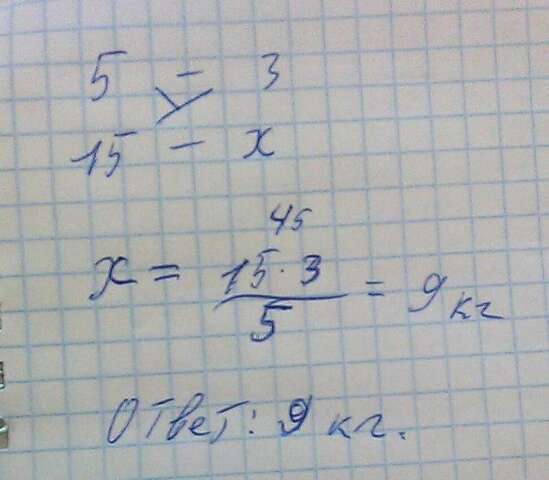 5 - 3
15 - x
45
x = 15 · 3 / 5 = 9 кг
Ответ: 9 кг.